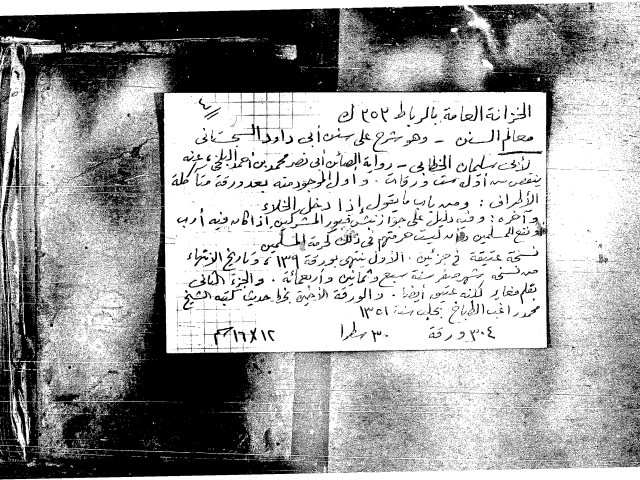 الخزانة العامة بالرباط ٣٥٣ ك
معالم السنن - وهو شرح على سنن أبي داود السجستاني
سليمان الخطابي - رواية الصائن أبي نصر محمد بن أحمد البلخي عنه
ينقص من أوّله ست ورقات . وأول الموجود منه بعد ورقة متآكلة
الأطراف : ومن باب ما يقول إذا دخل الخلاء
وآخره : وفيه دليل على جواز نبش قبور المشركين إذا كان فيه أرب
أو نفع للمسلمين وأن ليست حرمتهم في ذلك كحرمة المسلمين
نسخة عتيقة في جزئين . الأول ينتهي بورقة ١٣٩ ، وتاريخ الانتهاء
من نسخه شهر صفر سنة سبع وثمانين وأربعمائة . والجزء الثاني
بقلم مغاير لكنه عتيق أيضا . والورقة الأخيرة بخط حديث كتبه الشيخ
محمد راغب الطباخ بحلب سنة ١٣٥١
٣٠٤ ورقة ٣٠ سطرا ١٢ × ١٦ سم